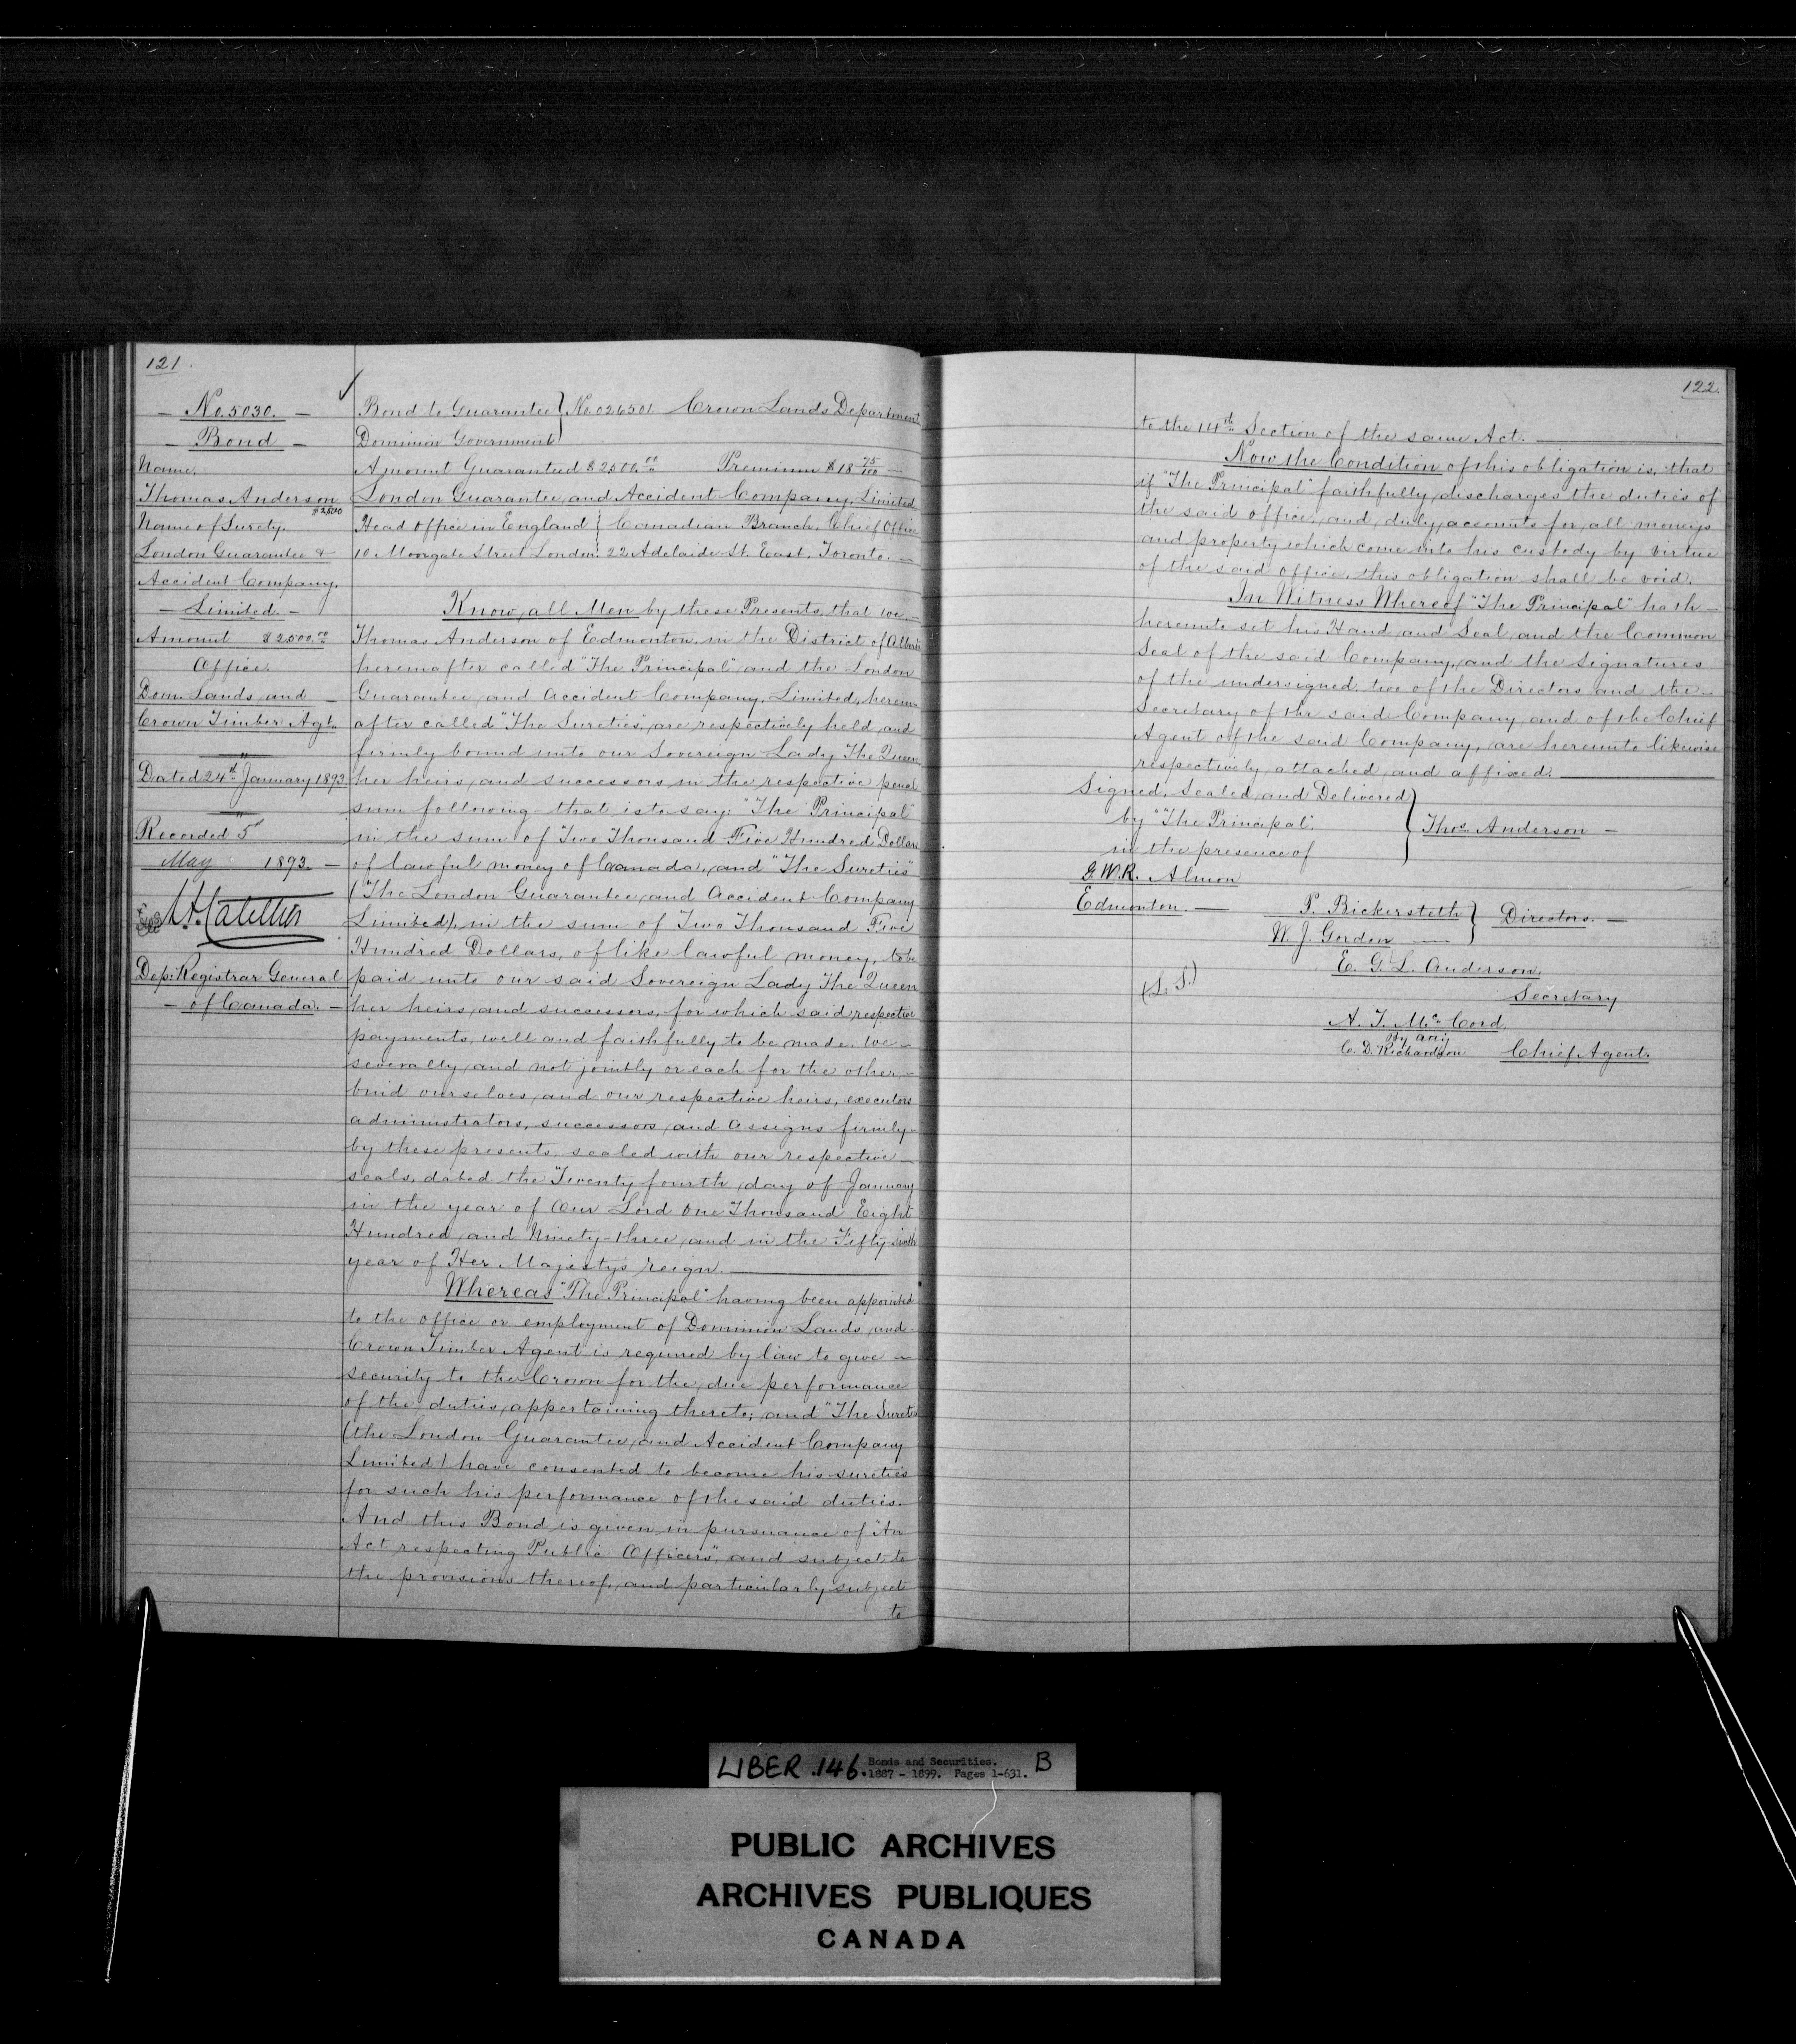 121.
No. 5030.
Bond
Name.
Thomas Anderson
$2500
Name of Surety.
London Guarantee &
Accident Company.
Limited.
Amount $2500.00
Office.
Dom. Lands and
Crown Timber Agt.
"
Dated 24th January 1893
"
Recorded 5th
May 1893.
Dep: Registrar General
of Canada.
Bond to Guarantee } No. 026501 Crown Lands Department
Dominion Government
Amount Guaranteed $2500.00 Premium $18 75/100
London Guarantee and Accident Company, Limited,
Head office in England { Canadian Branch, Chief Office
10 Moorgate Street London. 22 Adelaide St. East, Toronto.
Know all Men by these Presents, that we,
Thomas Anderson of Edmonton, in the District of Alberta
hereinafter called "The Principal" and the London
Guarantee and Accident Company, Limited, herein-
after called "The Sureties", are respectively held and
firmly bound unto our Sovereign Lady The Queen,
her heirs and successors in the respective penal
sum following that is to say: "The Principal"
in the sum of Two Thousand Five Hundred Dollars
of lawful money of Canada, and "The Sureties"
(The London Guarantee and Accident Company
Limited), in the sum of Two Thousand Five
Hundred Dollars, of like lawful money, to be
paid unto our said Sovereign Lady The Queen
her heirs and successors, for which said respective
payments, well and faithfully to be made. We
severally, and not jointly or each for the other,
bind ourselves, and our respective heirs, executors
administrators, successors, and assigns firmly
by these presents, sealed with our respective
seals, dated the Twenty fourth day of January
in the year of Our Lord One Thousand Eight
Hundred and Ninety-three, and in the Fifty-sixth
year of Her Majesty's reign.
Whereas "The Principal" having been appointed
to the office or employment of Dominion Lands and
Crown Timber Agent is required by law to give
security to the Crown for the due performance
of the duties appertaining thereto; and "The Sureties
(the London Guarantee and Accident Company
Limited) have consented to become his sureties
for such his performance of the said duties.
And this Bond is given in pursuance of "An
Act respecting Public Officers", and subject to
the provisions thereof, and particularly subject
to
122.
to the 14th Section of the same Act.
Now the Condition of this obligation is, that
if "The Principal" faithfully discharges the duties of
the said office, and duly accounts for all moneys
and property which come into his custody by virtue
of the said office, this obligation shall be void.
In Witness Whereof "The Principal" hath
hereunto set his Hand and Seal, and the Common
Seal of the said Company, and the Signatures
of the undersigned, two of the Directors and the
Secretary of the said Company, and of the Chief
Agent of the said Company, are hereunto likewise
respectively attached and affixed.
Signed, Sealed and Delivered
by "The Principal" } Thos. Anderson
in the presence of
G. W. R. Almon
Edmonton.
P. Bickersteth } Directors.
W. J. Gordon
E. G. L. Anderson.
(L. S.)
Secretary
A. T. McCord
By atty
C. D. Richardson Chief Agent.
LIBER .146. Bonds and Securities. B
1887 - 1899. Pages 1-631.
PUBLIC ARCHIVES
ARCHIVES PUBLIQUES
CANADA